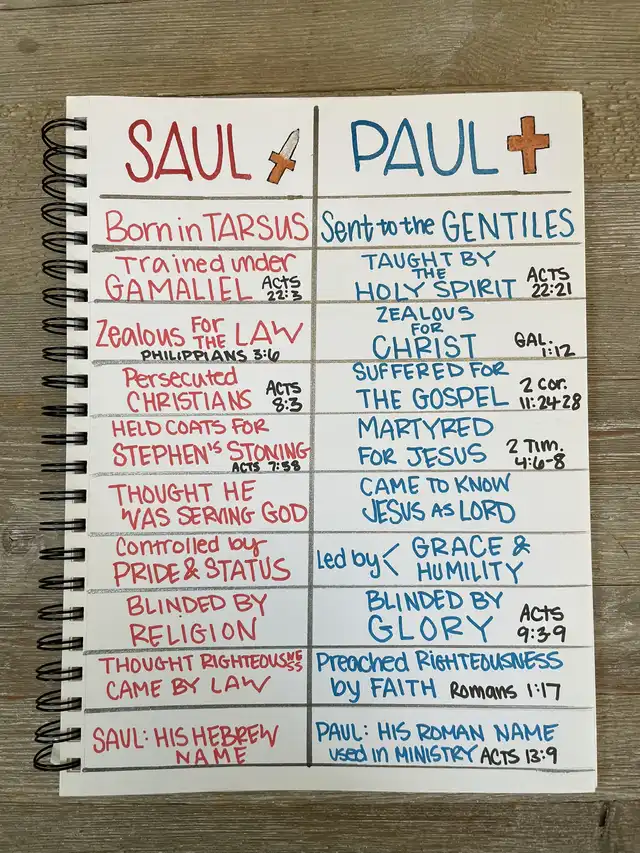 SAUL
PAUL
Born in TARSUS
Sent to the GENTILES
Trained under
GAMALIEL ACTS 22:3
TAUGHT BY
THE
HOLY SPIRIT ACTS 22:21
Zealous FOR THE LAW
PHILIPPIANS 3:6
ZEALOUS
FOR
CHRIST GAL. 1:12
Persecuted
CHRISTIANS ACTS 8:3
SUFFERED FOR
THE GOSPEL 2 Cor. 11:24-28
HELD COATS FOR
STEPHEN'S STONING
ACTS 7:58
MARTYRED
FOR JESUS 2 Tim. 4:6-8
THOUGHT HE
WAS SERVING GOD
CAME TO KNOW
JESUS AS LORD
Controlled by
PRIDE & STATUS
Led by < GRACE &
HUMILITY
BLINDED BY
RELIGION
BLINDED BY
GLORY ACTS 9:3-9
THOUGHT RIGHTEOUSNESS
CAME BY LAW
Preached RIGHTEOUSNESS
by FAITH Romans 1:17
SAUL: HIS HEBREW
NAME
PAUL: HIS ROMAN NAME
used in MINISTRY ACTS 13:9